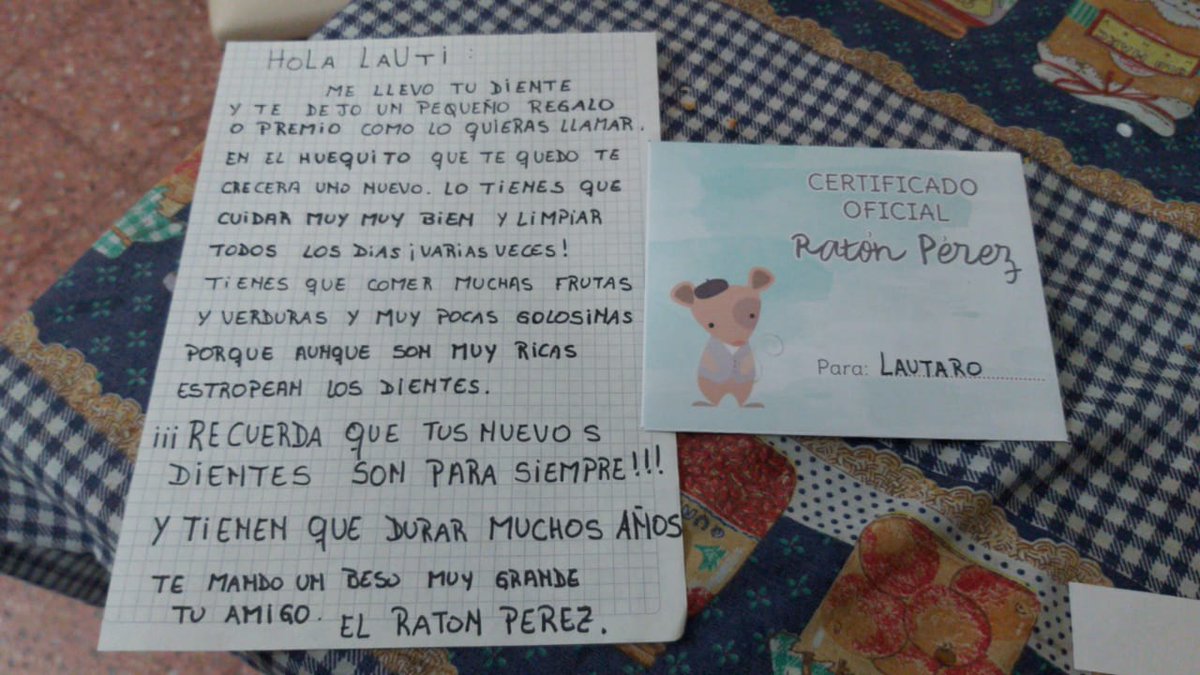 HOLA LAUTI:
ME LLEVO TU DIENTE
Y TE DEJO UN PEQUEÑO REGALO
O PREMIO COMO LO QUIERAS LLAMAR.
EN EL HUEQUITO QUE TE QUEDO TE
CRECERA UNO NUEVO. LO TIENES QUE
CUIDAR MUY MUY BIEN Y LIMPIAR
TODOS LOS DIAS ¡VARIAS VECES!
TIENES QUE COMER MUCHAS FRUTAS
Y VERDURAS Y MUY POCAS GOLOSINAS
PORQUE AUNQUE SON MUY RICAS
ESTROPEAN LOS DIENTES.
¡¡¡RECUERDA QUE TUS NUEVOS
DIENTES SON PARA SIEMPRE!!!
Y TIENEN QUE DURAR MUCHOS AÑOS
TE MANDO UN BESO MUY GRANDE
TU AMIGO. EL RATON PEREZ.
CERTIFICADO
OFICIAL
Ratón Pérez
Para: LAUTARO